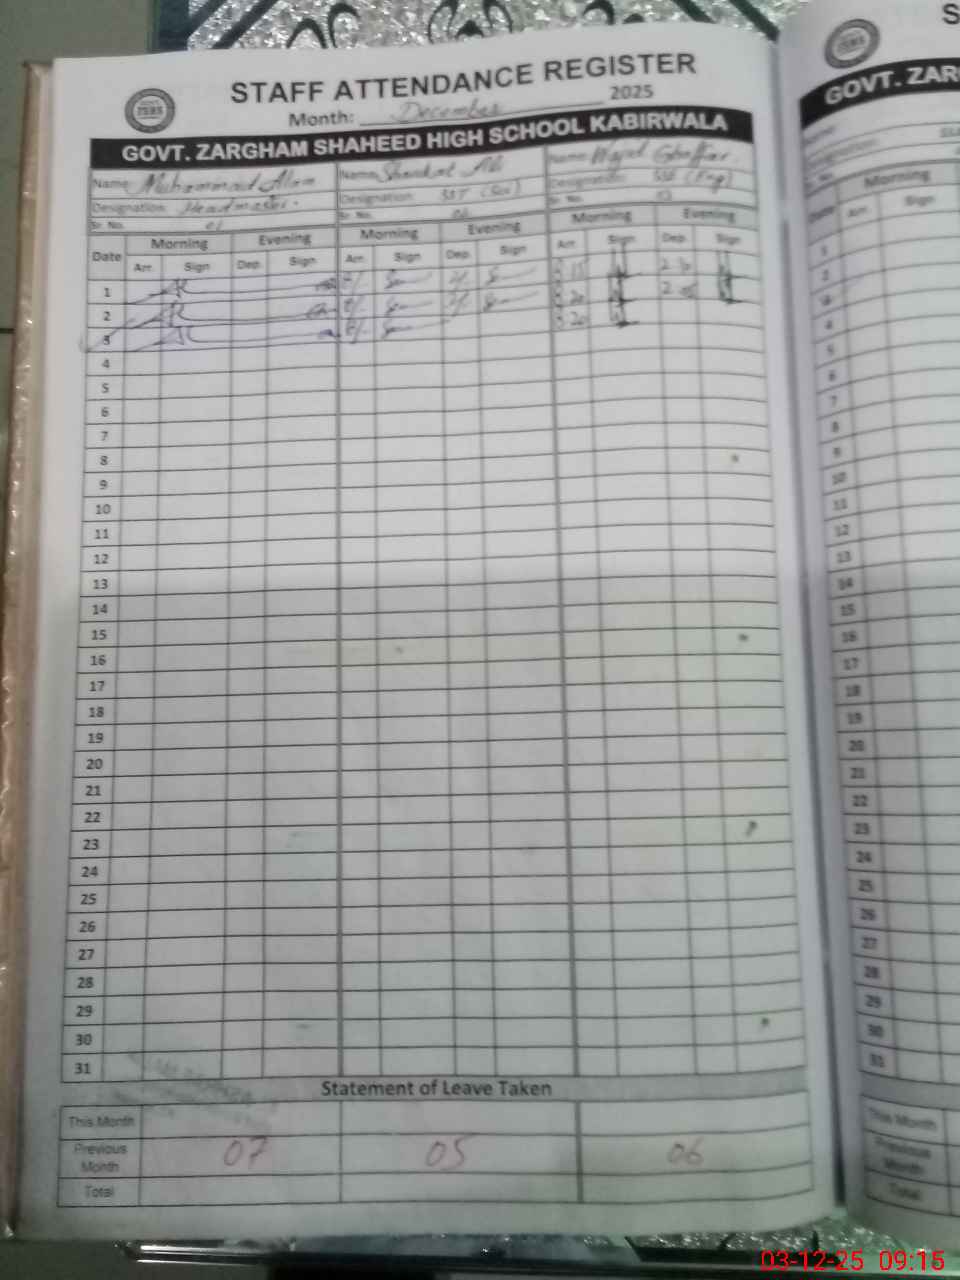 STAFF ATTENDANCE REGISTER
Month: December 2025
GOVT. ZARGHAM SHAHEED HIGH SCHOOL KABIRWALA
Name Muhammad Alam Name Shaukat Ali Name Wajid Ghaffar
Designation: Headmaster Designation: SST (Sci) Designation: SSE (Eng)
Sr No. 01 Sr No. 02 Sr No. 03
Date Morning Evening Morning Evening Morning Evening
Arr. Sign Dep. Sign Arr. Sign Dep. Sign Arr. Sign Dep. Sign
1 8/- 2/- 8:15 2:30
2 8/- 2/- 8:20
3 8/- 8:20
4
5
6
7
8
9
10
11
12
13
14
15
16
17
18
19
20
21
22
23
24
25
26
27
28
29
30
31
Statement of Leave Taken
This Month
Previous Month 07 05 06
Total
S
GOVT. ZAR
Morning
Date Arr. Sign
1
2
4
5
6
7
8
9
10
11
12
13
14
15
16
17
18
19
20
21
22
23
24
25
26
27
28
29
30
31
This Month
Previous Month
Total
03-12-25 09:15